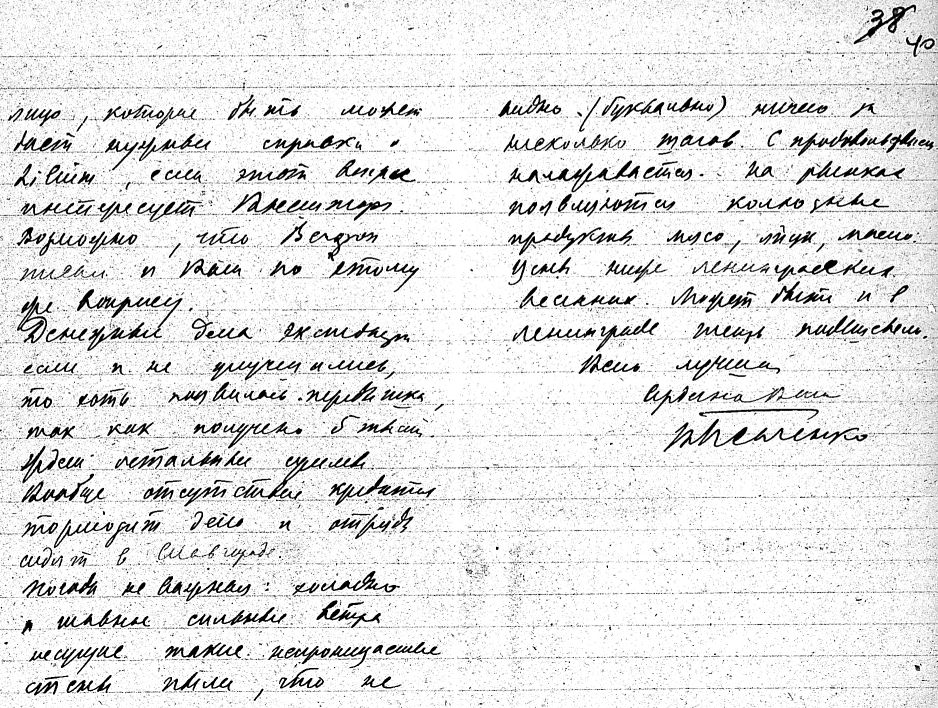 38
40
лицо, которые быть может
даст нужные справки о
Lilium, если этот вопрос
интересует
Возможно, что
писал и Вам по этому
же вопросу.
Денежные дела экспедиции
если и не улучшились,
то хоть появилась передышка,
так как получено 5 тысяч.
Ждем остальные суммы
Вообще отсутствие кредитов
тормозит дело и отряды
сидят в Славгороде.
Погода не важная: холодно
и главное сильные ветра
несущие такие непроницаемые
стены пыли, что не
видно (буквально) ничего в
несколько шагов. С продовольствием
налаживается. На рынках
появляются колхозные
продукты мясо, яйца, масло.
Цены ниже ленинградских
весенних. Может быть и в
Ленинграде теперь
Всего лучшего
Ваш